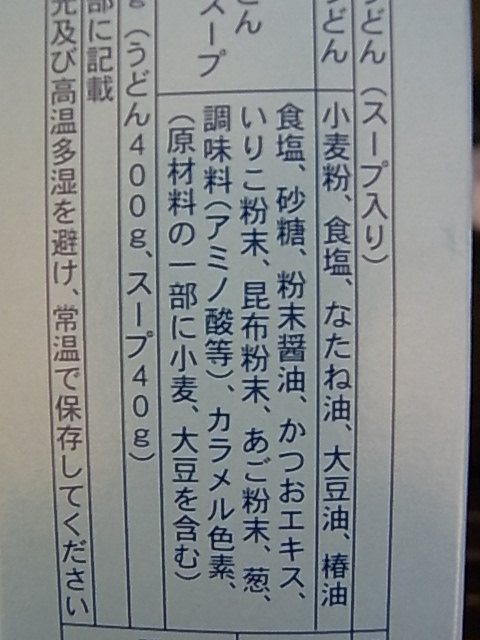 うどん(スープ入り)
うどん
小麦粉、食塩、なたね油、大豆油、椿油
どん
スープ
食塩、砂糖、粉末醤油、かつおエキス、
いりこ粉末、昆布粉末、あご粉末、葱、
調味料(アミノ酸等)、カラメル色素、
(原材料の一部に小麦、大豆を含む)
g(うどん400g、スープ40g)
部に記載
光及び高温多湿を避け、常温で保存してください